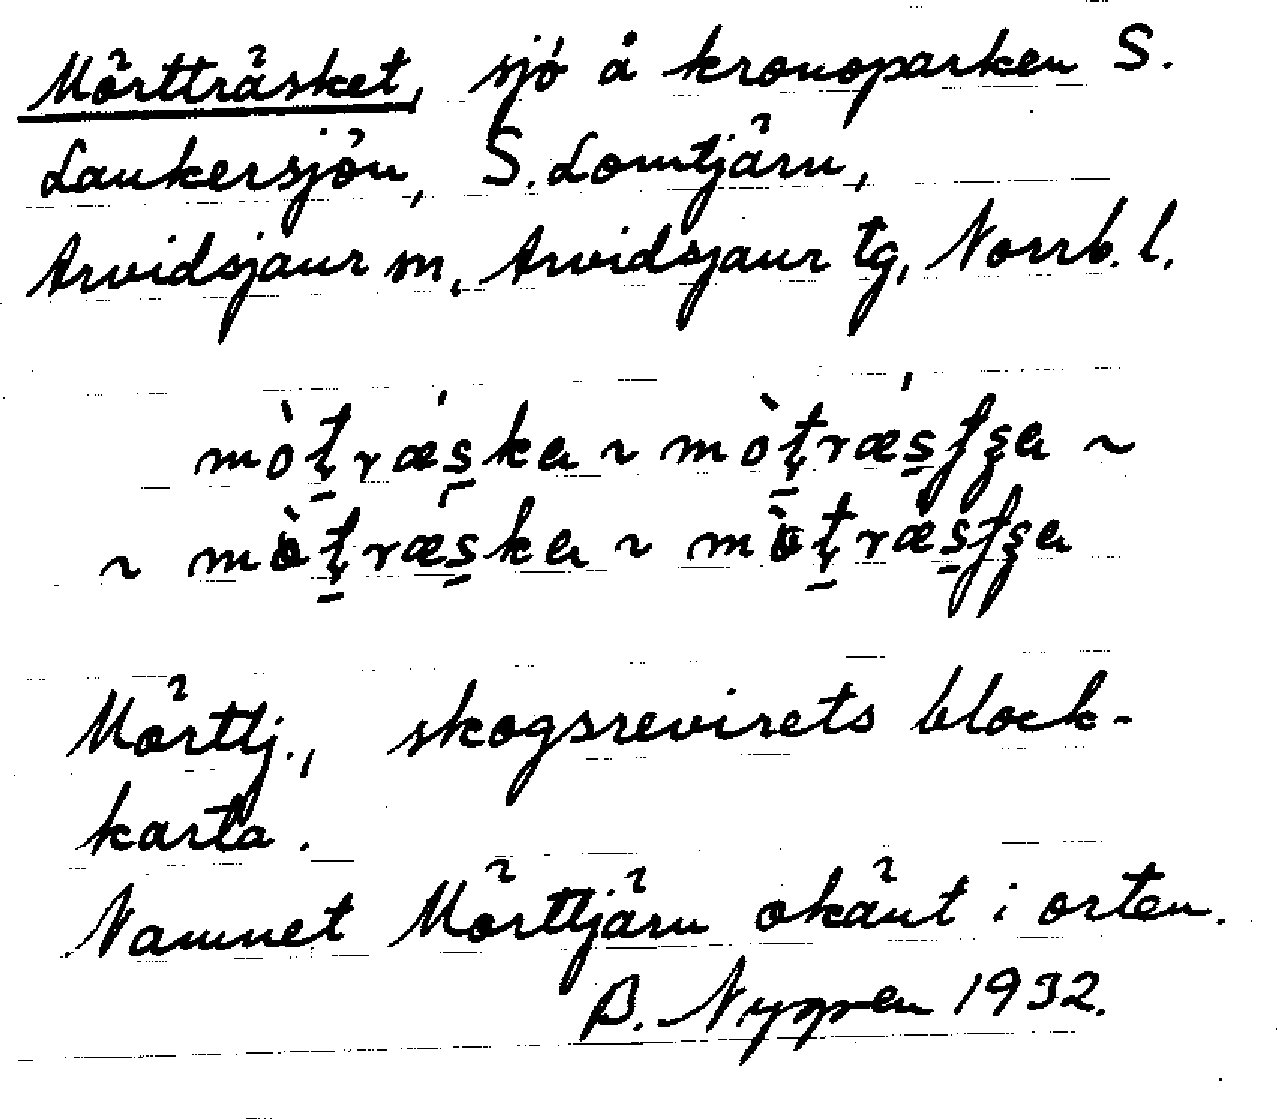 Mörtträsket, sjö å kronoparken S.
Laukersjön, S. Lomtjärn,
Arvidsjaur sn, Arvidsjaur tg, Norrb. l.
mòt̠ræ̍s̠ka ~ mòt̠ræ̍s̠ʃʂa ~
~ mòt̠ræ̍s̠ka ~ mòt̠ræ̍s̠ʃʂa
Mörttj., skogsrevirets block-
karta.
Namnet Mörttjärn okänt i orten.
B. Nygren 1932.